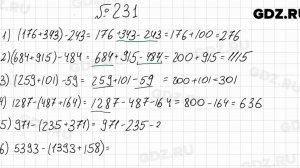 № 231
1) (176+343)-243=176+343-243=176+100=276
2)(684+915)-484=684+915-484=200+915=1115
3) (259+101)-59 = 259+101-59 = 200+101=301
4) 1287-(487+164)=1287-487-164=800-164=636
5) 971-(235+371)=971-235-2
6) 5393-(1393+158)=